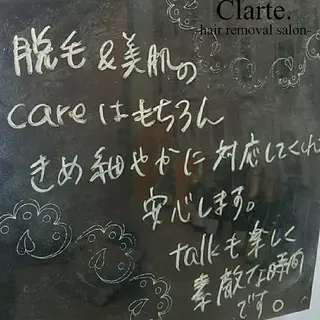 Clarte.
-hair removal salon-
脱毛&美肌の
careはもちろん
きめ細やかに対応してくれて
安心します。
talkも楽しく
素敵な時間
です。